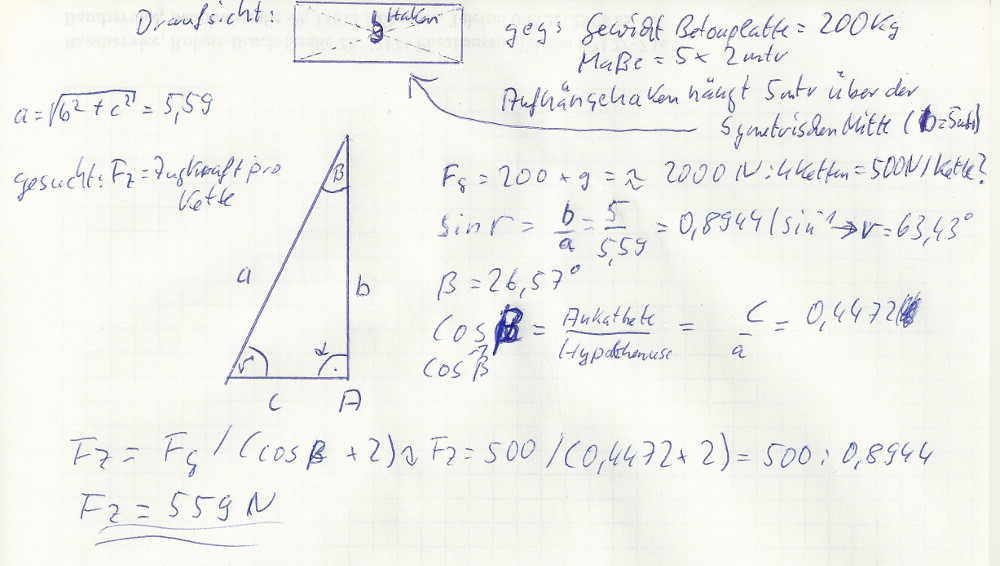 Draufsicht:
Haken
geg: Gewicht Betonplatte = 200 Kg
Maße = 5 x 2 mtr
Aufhängehaken hängt 5 mtr über der
Symetrischen Mitte (b=5mtr)
a = √b² + c² = 5,59
gesucht: Fz = Zugkraft pro
Kette
β
a
b
γ
α
c
A
Fg = 200 * g = ≈ 2000 N : 4 Ketten = 500N/Kette?
sin γ = b/a = 5/5,59 = 0,8944 / sin⁻¹ → γ = 63,43°
β = 26,57°
cos β = Ankathete / Hypothenuse = c/a = 0,4472
cos β
Fz = Fg / (cos β * 2) ≈ Fz = 500 / (0,4472 * 2) = 500 : 0,8944
Fz = 559 N